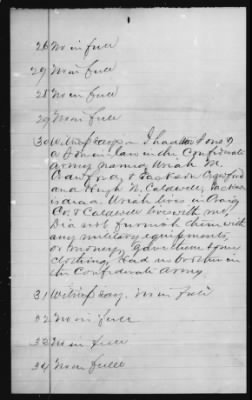 26 No in full
27 No in full
28 No in full
29 No in full
30 Witness says I had one
a in law in the Confederate
Army named Uriah M.
Crawford & Jackson Crawford
and Hugh N. Caldwell, Jackson
is dead Uriah lives in Craig
Co. & Caldwell lives with me,
Did not furnish them with
any military equipments,
or money, Gave them some
clothing, Had no brother in
the Confederate Army
31 Witness says, No in full
32 No in full
33 No in full
34 No in full